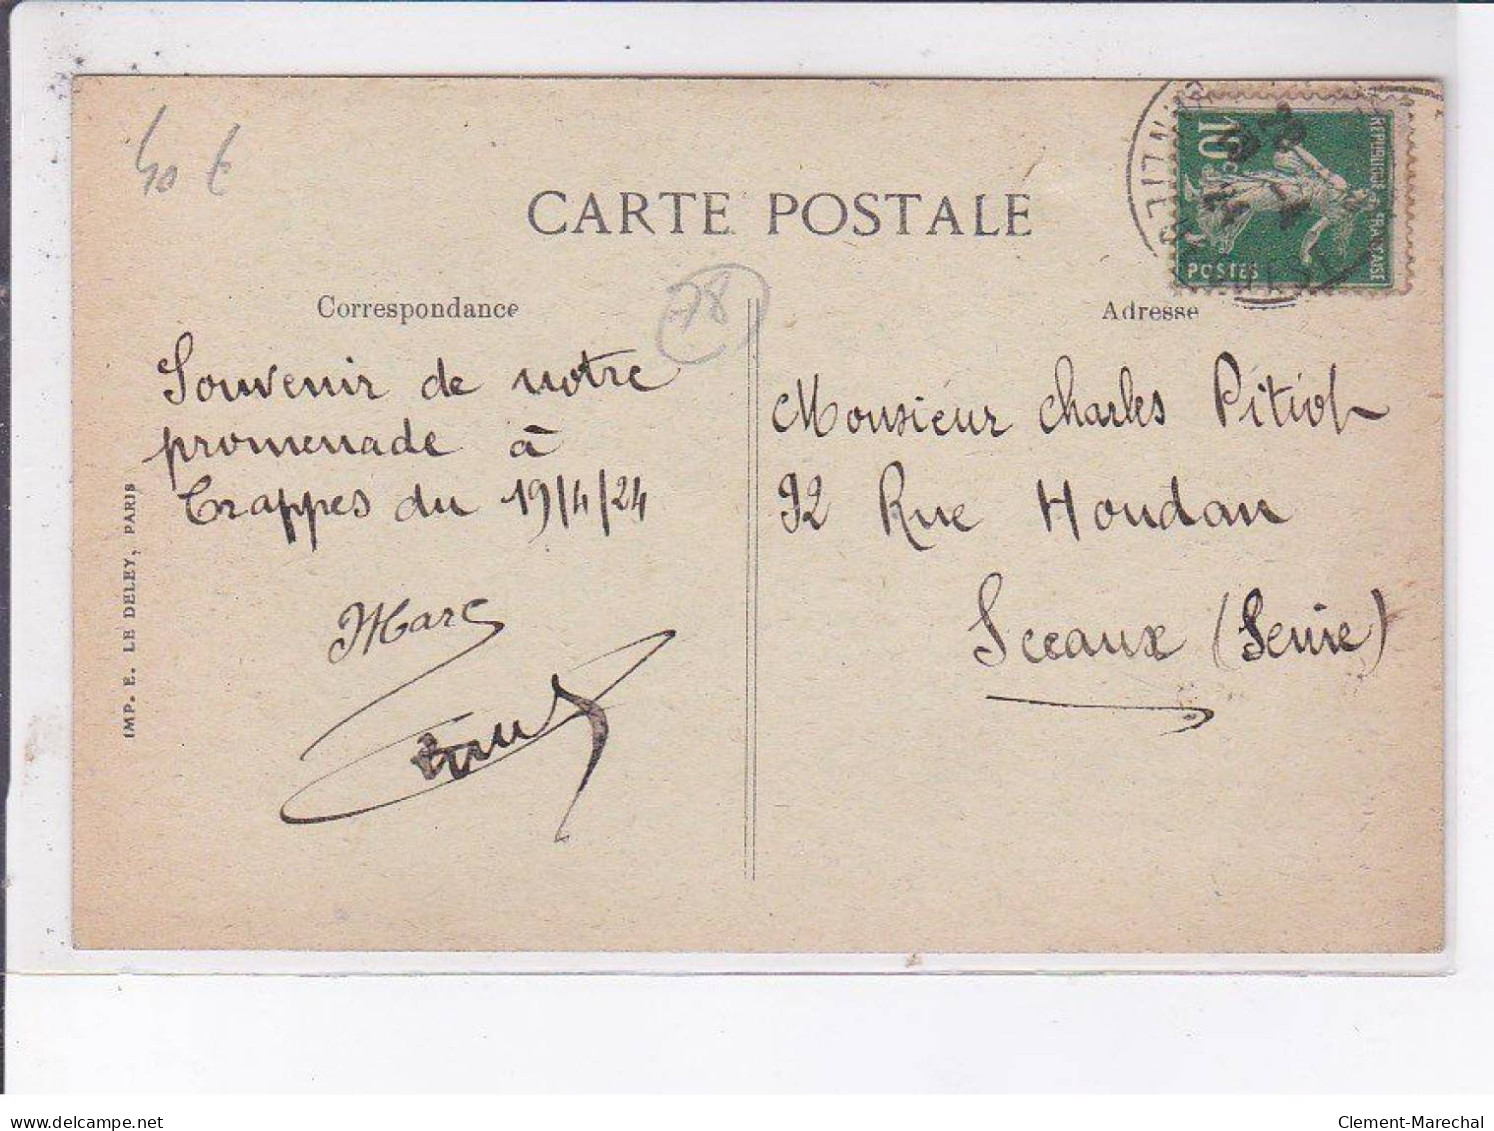 40 €
CARTE POSTALE
78
Correspondance
Adresse
Souvenir de notre
promenade à
Trappes du 19/4/24
Marc
Monsieur Charles Pitiot
92 Rue Houdan
Sceaux (Seine)
IMP. E. LE DELEY, PARIS
REPUBLIQUE FRANÇAISE
10c
POSTES
www.delcampe.net
Clement-Marechal